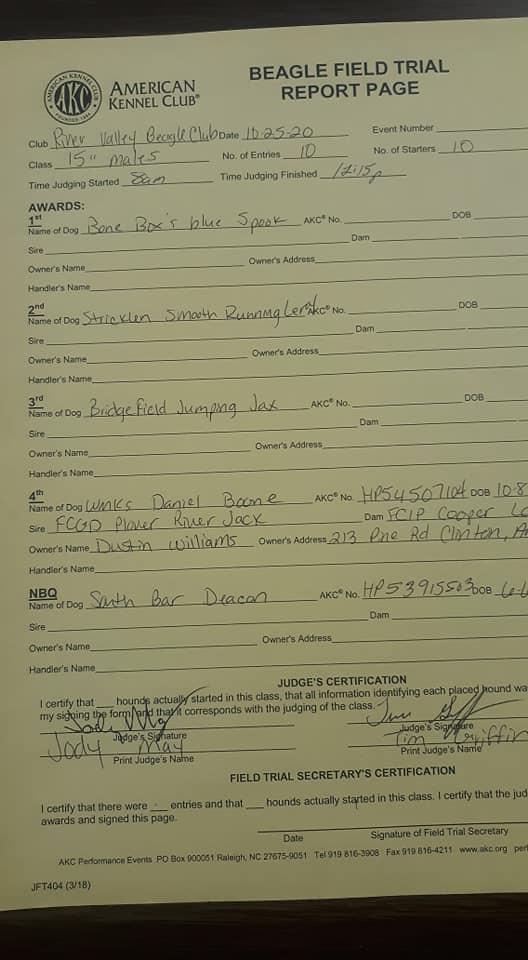 AMERICAN KENNEL CLUB
AKC
FOUNDED 1884
AMERICAN
KENNEL CLUB®
BEAGLE FIELD TRIAL
REPORT PAGE
Club River Valley Beagle Club Date 10-25-20 Event Number
Class 15" males No. of Entries 10 No. of Starters 10
Time Judging Started 8am Time Judging Finished 12:15p
AWARDS:
1st
Name of Dog Bone Box's blue Spook AKC® No. DOB
Sire Dam
Owner's Name Owner's Address
Handler's Name
2nd
Name of Dog Stricklen Smooth Running AKC® No. DOB
Sire Dam
Owner's Name Owner's Address
Handler's Name
3rd
Name of Dog Bridgefield Jumping Jax AKC® No. DOB
Sire Dam
Owner's Name Owner's Address
Handler's Name
4th
Name of Dog Wmks Daniel Boone AKC® No. HP54507104 DOB 10-8
Sire FCGD Plover River Jack Dam FCIP Cooper
Owner's Name Dustin Williams Owner's Address 213 Pine Rd Clinton,
Handler's Name
NBQ
Name of Dog South Bar Deacon AKC® No. HP53915503 DOB
Sire Dam
Owner's Name Owner's Address
Handler's Name
JUDGE'S CERTIFICATION
I certify that hounds actually started in this class, that all information identifying each placed hound wa
my signing the form and that it corresponds with the judging of the class.
Judge's Signature Judge's Signature
Jody May Tim Griffin
Print Judge's Name Print Judge's Name
FIELD TRIAL SECRETARY'S CERTIFICATION
I certify that there were entries and that hounds actually started in this class. I certify that the jud
awards and signed this page.
Date Signature of Field Trial Secretary
AKC Performance Events PO Box 900051 Raleigh, NC 27675-9051 Tel 919 816-3908 Fax 919 816-4211 www.akc.org
JFT404 (3/18)